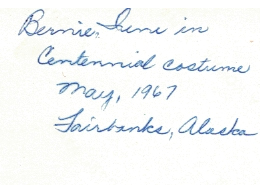 Bernie, Irene in
Centennial costume
May, 1967
Fairbanks, Alaska